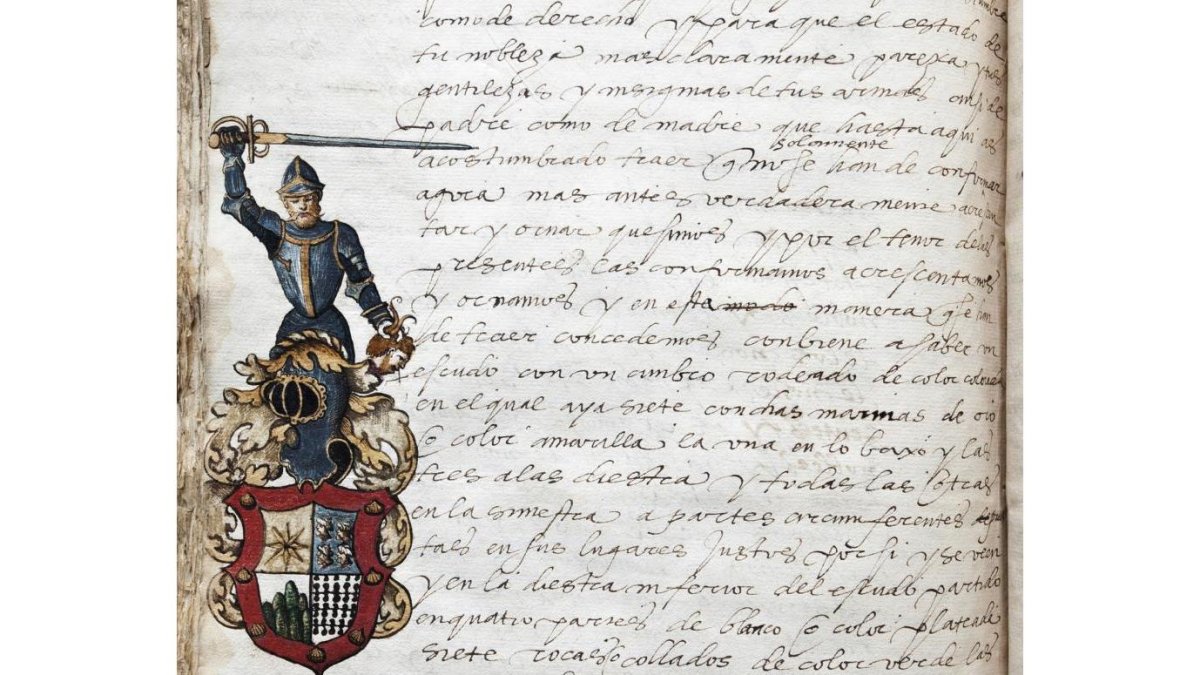 como de derecho y para que el estado de
tu nobleza mas claramente parezca y tus
gentilezas y insignias de tus armas ansi de
padre como de madre que hasta aqui as
solamente
acostumbrado traer q no se han de confirmar
agora mas antes verdaderamente acresen
tar y ornar quesimos y por el tenor de las
presentes las confirmamos acrescentamos
y ornamos y en esta modo manera q se han
de traer concedemos conbiene a saber un
escudo con un timbro rodeado de color colorada
en el qual aya siete conchas marinas de oro
o color amarilla la una en lo baxo y las
tres a la diestra y todas las otras
en la sinestra a partes circunferentes
tas en sus lugares justos por si y se veen
y en la diestra inferior del escudo partido
en quatro partes de blanco o color plateada
siete rocas o collados de color verde las